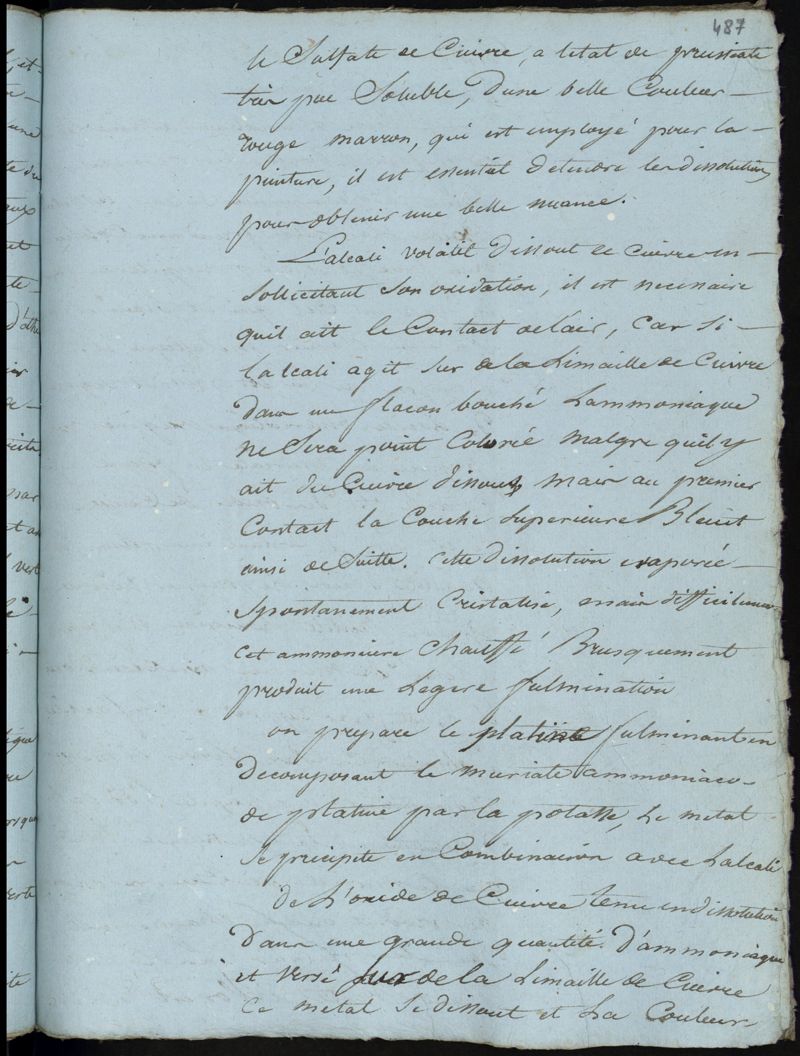 487
le Sulfate de Cuivre, a letat de prussiate
très peu Soluble, d'une belle Couleur —
rouge marron, qui est employé pour la —
peinture, il est essentiel detendre les dissolutions
pour obtenir une belle nuance.
L'alcali volatil dissout le cuivre en —
Sollicitant Son oxidation, il est necessaire
quil ait le Contact de l'air, Car Si —
lalcali agit Sur de la Limaille de Cuivre
dans un flacon bouché Lammoniaque
ne Sera point Colorée malgre quil y
ait du Cuivre dissout, mais au premier
Contact la Couche Superieure Bleuit
ainsi de Suitte. Cette dissolution evaporée —
Spontanement Cristalise, mais difficilement
Cet ammoniure Chauffé Brusquement
produit une Legere fulmination
on prepare le platine fulminant en
decomposant le muriate ammoniaco-
de platine par la potasse, Le metal
Se precipite en Combinaison avec Lalcali
De L'oxide de Cuivre tenu en dissolution
Dans une grande quantité d'ammoniaque
et versé sur de la Limaille de Cuivre
Ce metal Se dissout et La Couleur